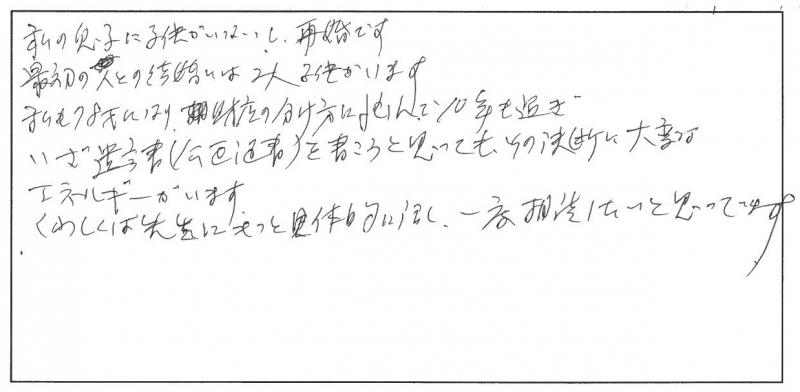 私の息子に子供がいないし、再婚です
最初の人との結婚には2人子供がいます
私も78才になり、財産の分け方に悩んで10年も過ぎ
いざ遺言書(公正証書)を書こうと思っても、その決断に大変な
エネルギーがいます
くわしくは先生にもっと具体的に話し、一度相談したいと思ってます